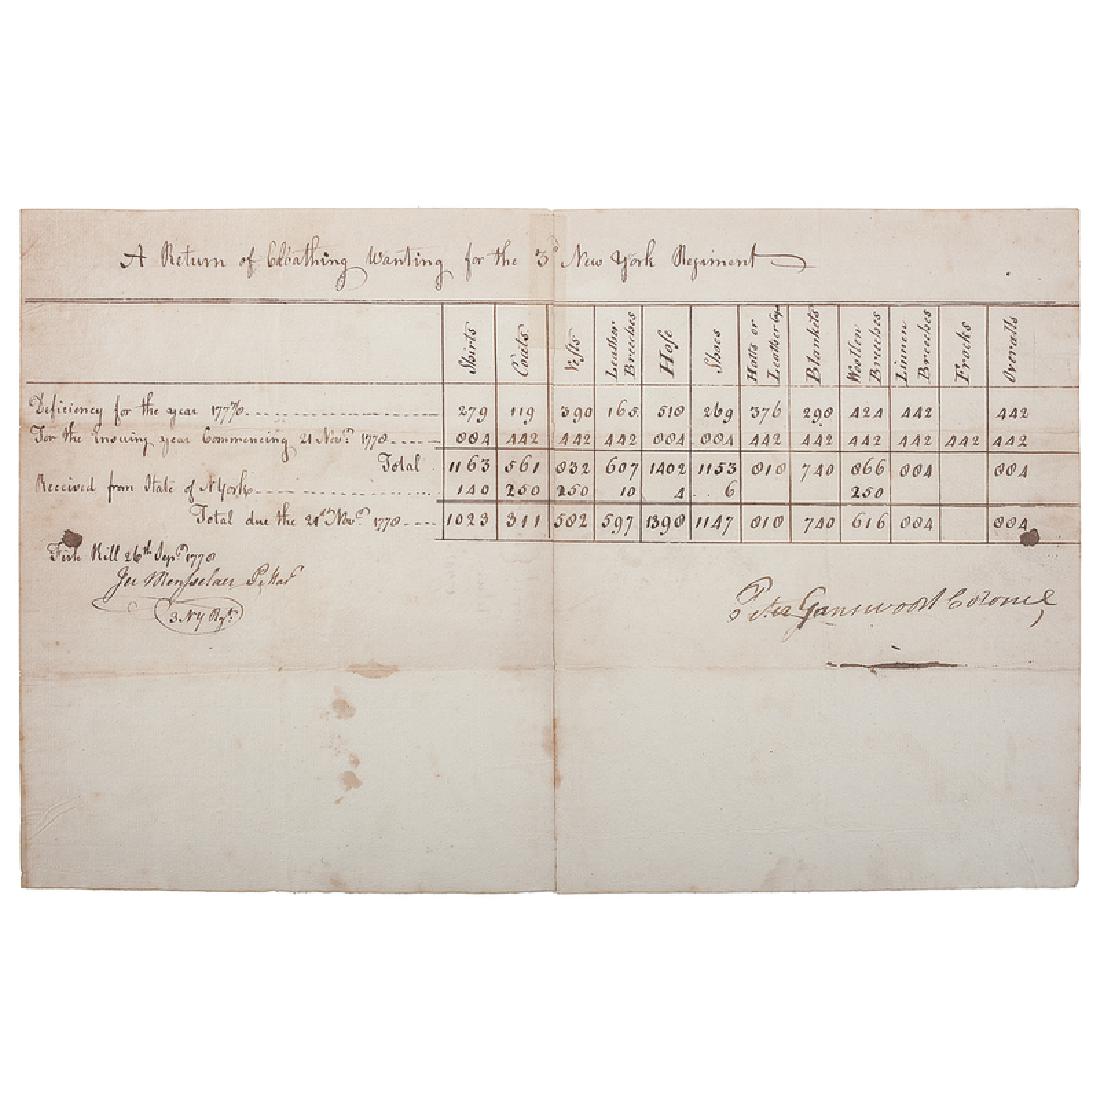 A Return of Cloathing Wanting for the 3d New York Regiment
Shirts Coats Vests Leather Breeches Hose Shoes Hatts or Leather Caps Blankets Woollen Breeches Linnen Breeches Frocks Overalls
Deficiency for the year 1778 279 119 390 165 518 269 376 298 424 442 442
For the Insuing year Commencing 21 Novr. 1778 884 442 442 442 884 884 442 442 442 442 442 442
Total 1163 561 832 607 1402 1153 818 740 866 884 884
Received from State of N York 140 250 250 10 4 6 250
Total due the 21st Novr. 1778 1023 311 582 597 1398 1147 818 740 616 884 884
Fish Kill 26th Sepr. 1778
Jer Renselaer
3 N Y Rgt.
Peter Gansevoort Colonel